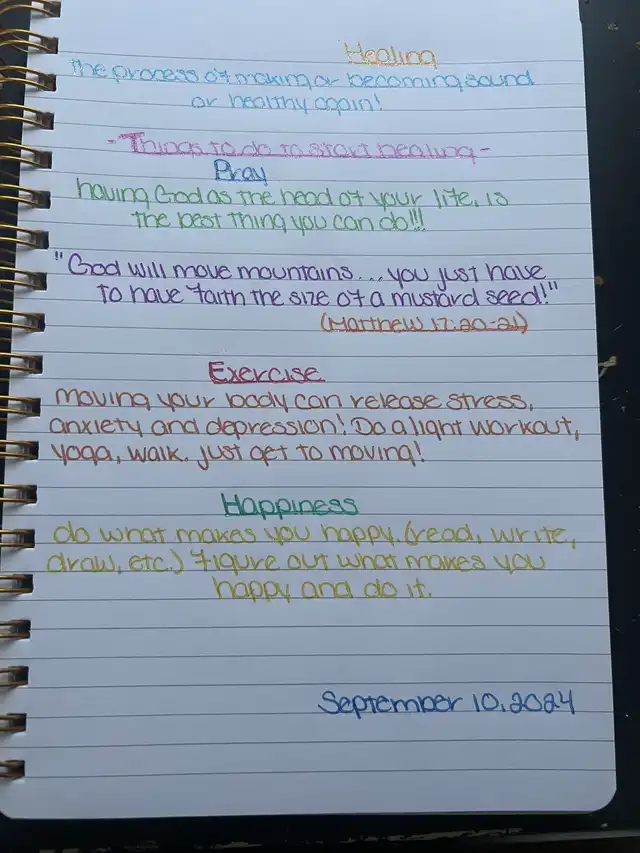 Healing
the process of making or becoming sound
or healthy again!
-Things to do to start healing-
Pray
having God as the head of your life, is
the best thing you can do!!!
"God will move mountains... you just have
to have faith the size of a mustard seed!"
(Matthew 17:20-21)
Exercise
moving your body can release stress,
anxiety and depression! Do a light workout,
yoga, walk. just get to moving!
Happiness
do what makes you happy. (read, write,
draw, etc.) figure out what makes you
happy and do it.
September 10, 2024